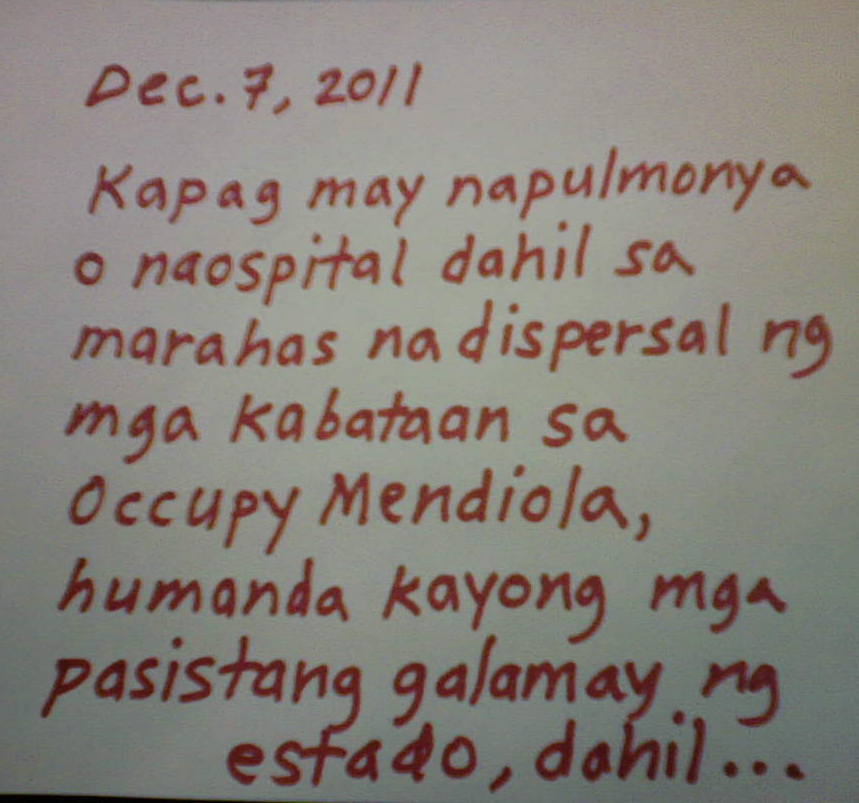 Dec. 7, 2011
Kapag may napulmonya
o naospital dahil sa
marahas na dispersal ng
mga kabataan sa
Occupy Mendiola,
humanda kayong mga
pasistang galamay ng
estado, dahil...